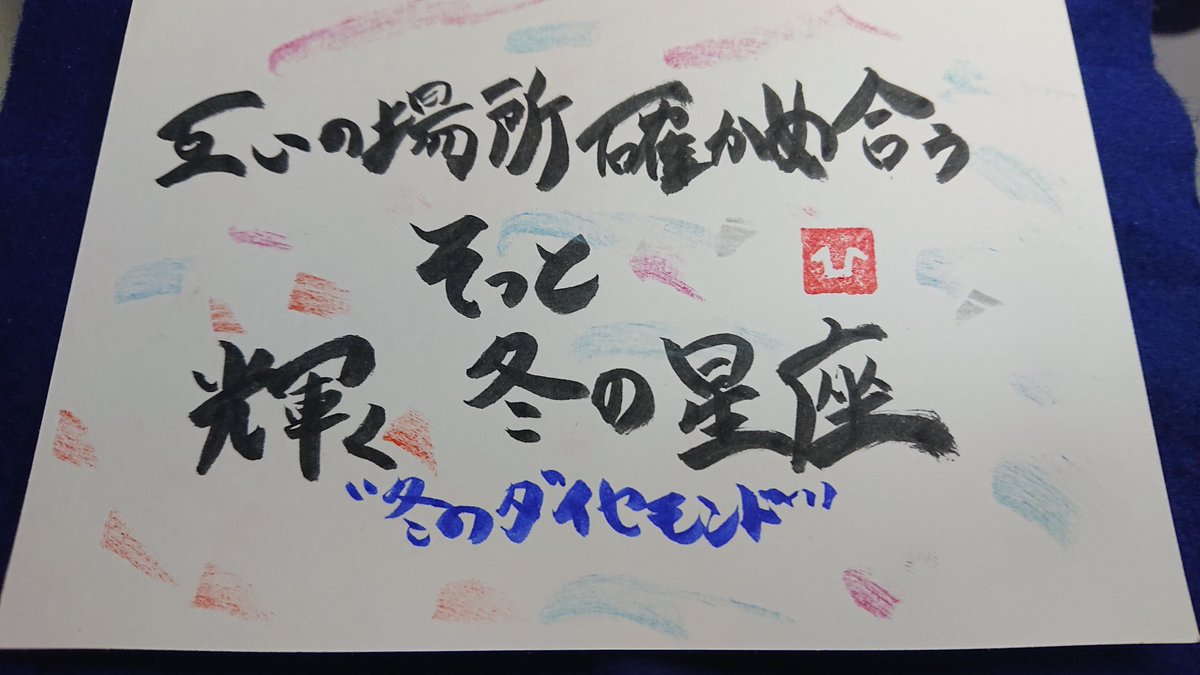 互いの場所確かめ合う
そっと
輝く 冬の星座
"冬のダイヤモンド"